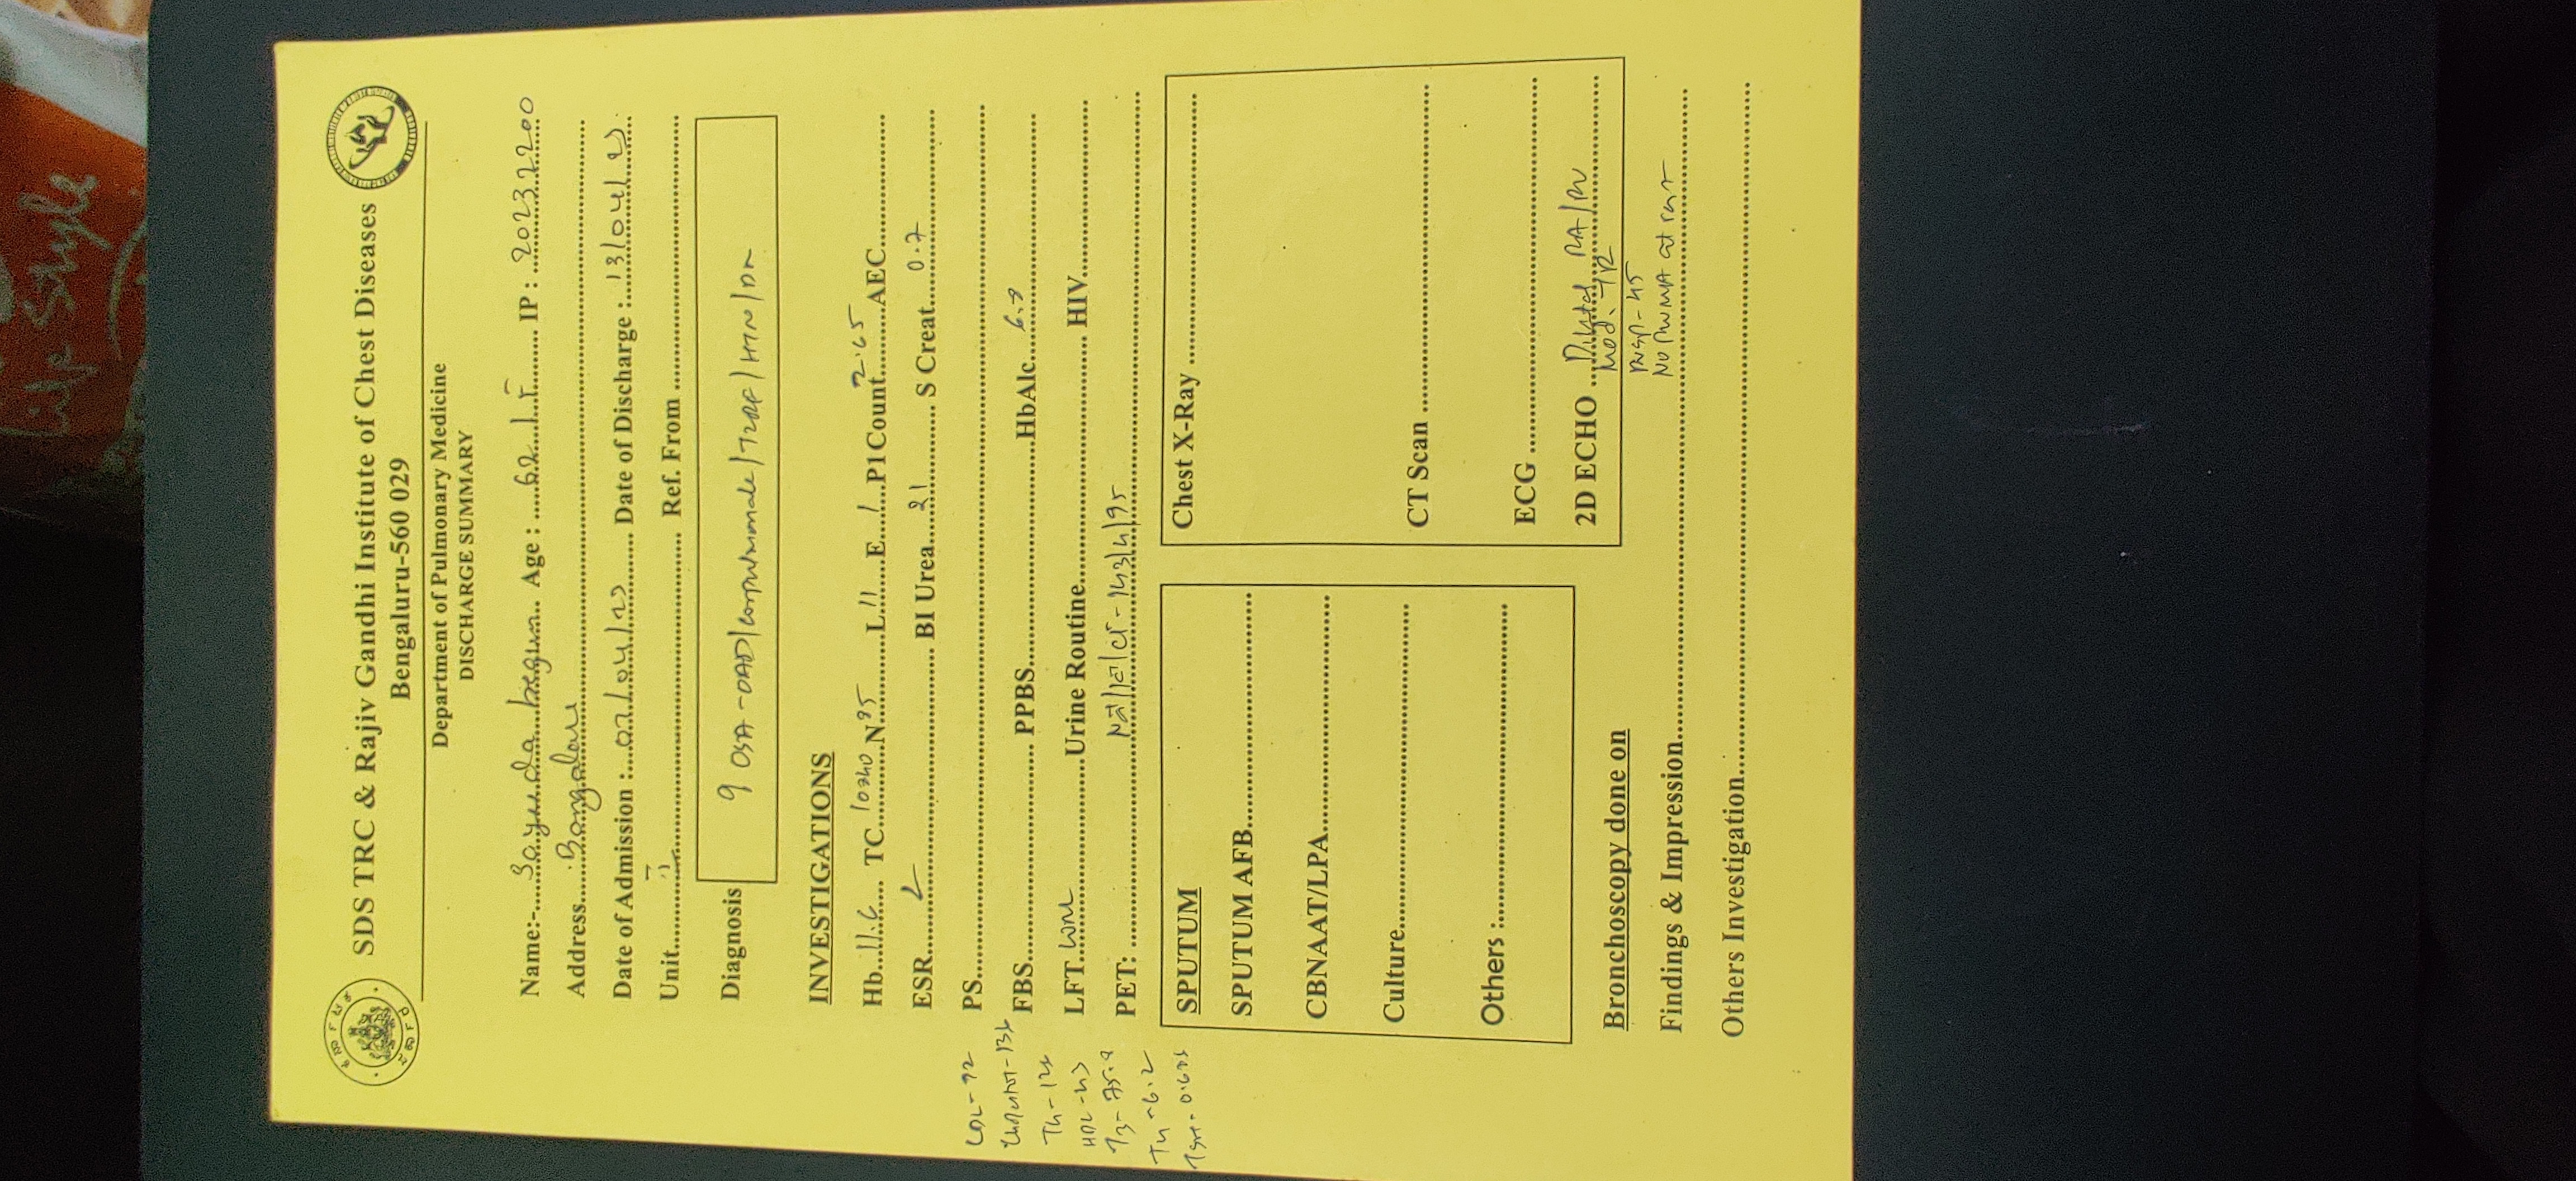 Life Style
SDS TRC & Rajiv Gandhi Institute of Chest Diseases
Bengaluru-560 029
Department of Pulmonary Medicine
DISCHARGE SUMMARY
Name:- begum Age : 62/F IP : 20232200
Address Bangalore
Date of Admission : Date of Discharge : 13/04/23
Unit II Ref. From
Diagnosis ? OSA-OAD/ /T2RF/HTN/DM
INVESTIGATIONS
Hb 11.6 TC 10240 N 95 L 11 E 1 P1Count 2.65 AEC
ESR BI Urea 21 S Creat 0.7
PS
FBS PPBS HbAlc
LFT WNL Urine Routine HIV
PET: Na/K/Cl - 143/4/95
LDL-72
HDL-43
T4-6.2
SPUTUM
SPUTUM AFB
CBNAAT/LPA
Culture
Others :
Chest X-Ray
CT Scan
ECG
2D ECHO Dilated RA/RV
Mod. TR
RVSP-45
No RWMA at rest
Bronchoscopy done on
Findings & Impression
Others Investigation